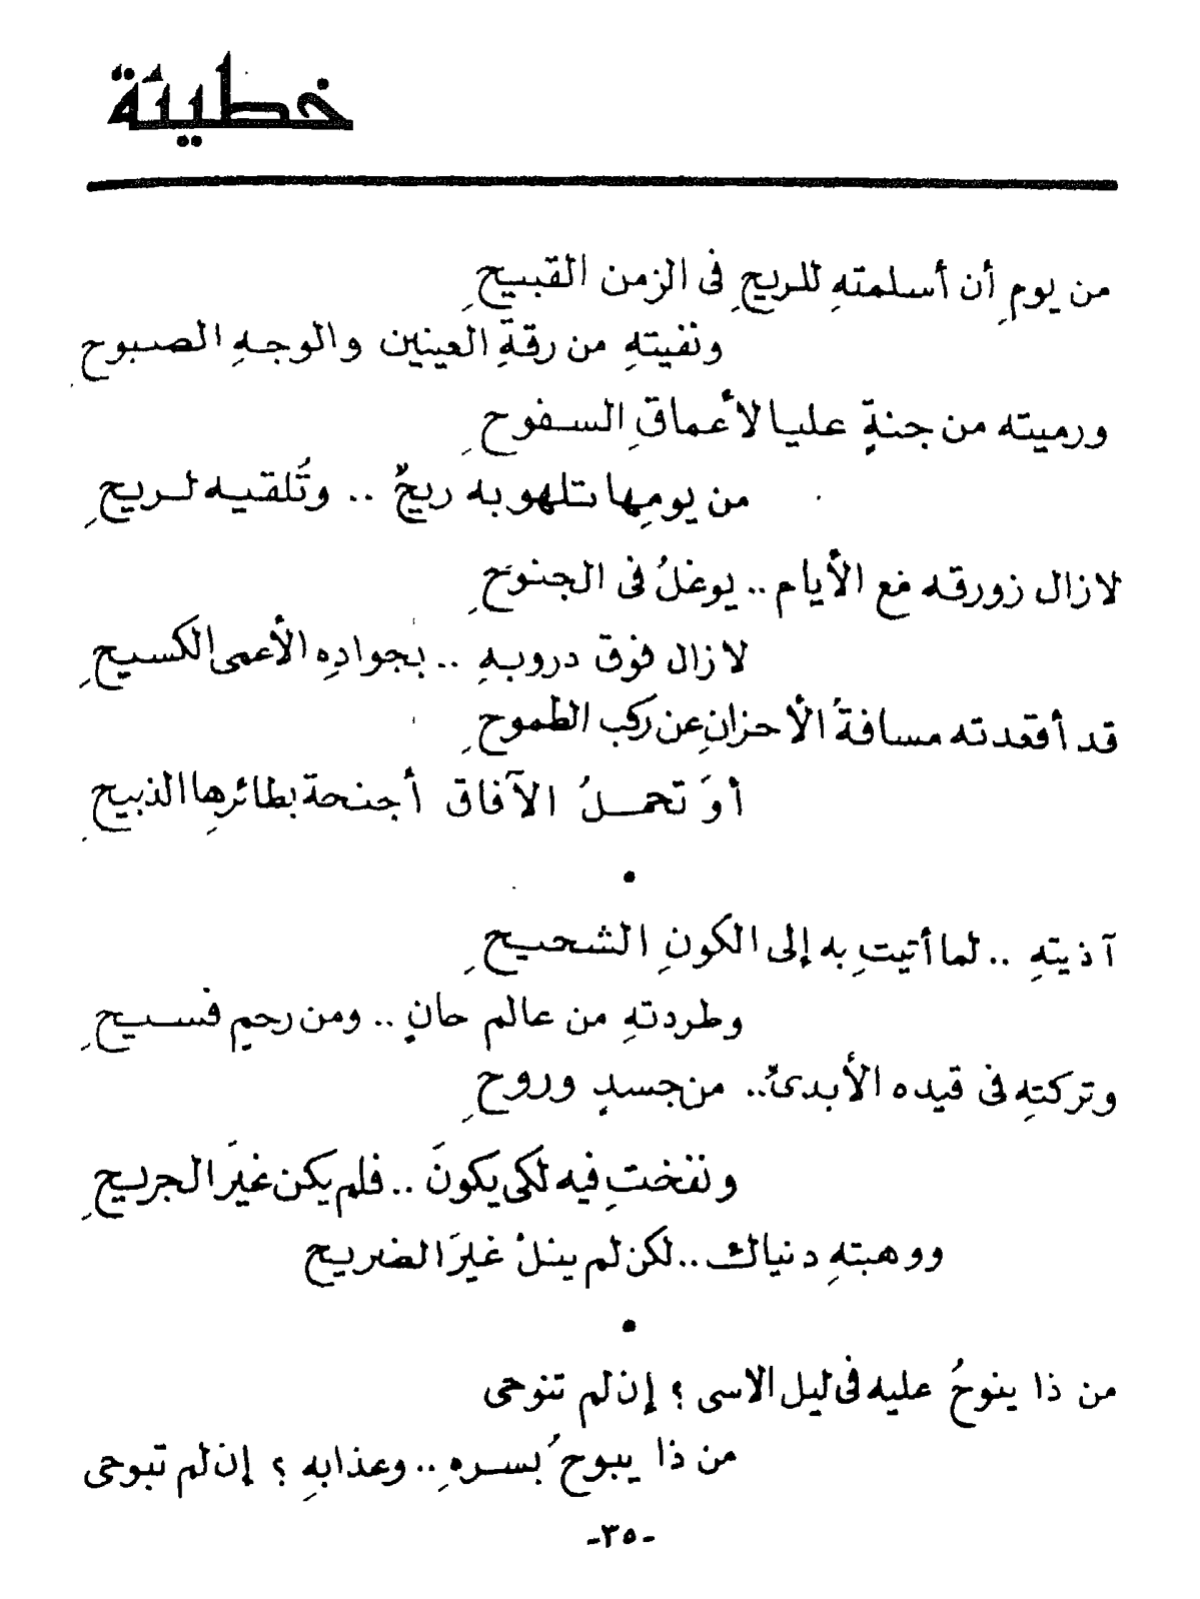 خطيئة
من يومِ أن أسلمتهِ للريحِ فى الزمن القبيحِ
ونفيتهِ من رقةِ العينين والوجهِ الصبوحِ
ورميته من جنةٍ عليا لأعماقِ السفوحِ
من يومِها تلهو به ريحٌ .. وتُلقيه لريحِ
لازال زورقه مع الأيام .. يوغلُ فى الجنوحِ
لازال فوق دروبهِ .. بجوادِه الأعمى الكسيحِ
قد أقعدته مسافةُ الأحزانِ عن ركب الطموحِ
أوَ تحملُ الآفاق أجنحة بطائرِها الذبيحِ
•
آذيتهِ .. لما أتيتِ به إلى الكونِ الشحيحِ
وطردتهِ من عالم حانٍ .. ومن رحمٍ فسيحِ
وتركتهِ فى قيده الأبدىِّ .. من جسدٍ وروحِ
ونفختِ فيه لكى يكونَ .. فلم يكن غيرَ الجريحِ
ووهبتهِ دنياك .. لكن لم ينلْ غيرَ الضريح
•
من ذا ينوحُ عليه فى ليل الاسى ؟ إن لم تنوحى
من ذا يبوحُ بسرهِ .. وعذابهِ ؟ إن لم تبوحى
-٣٥-